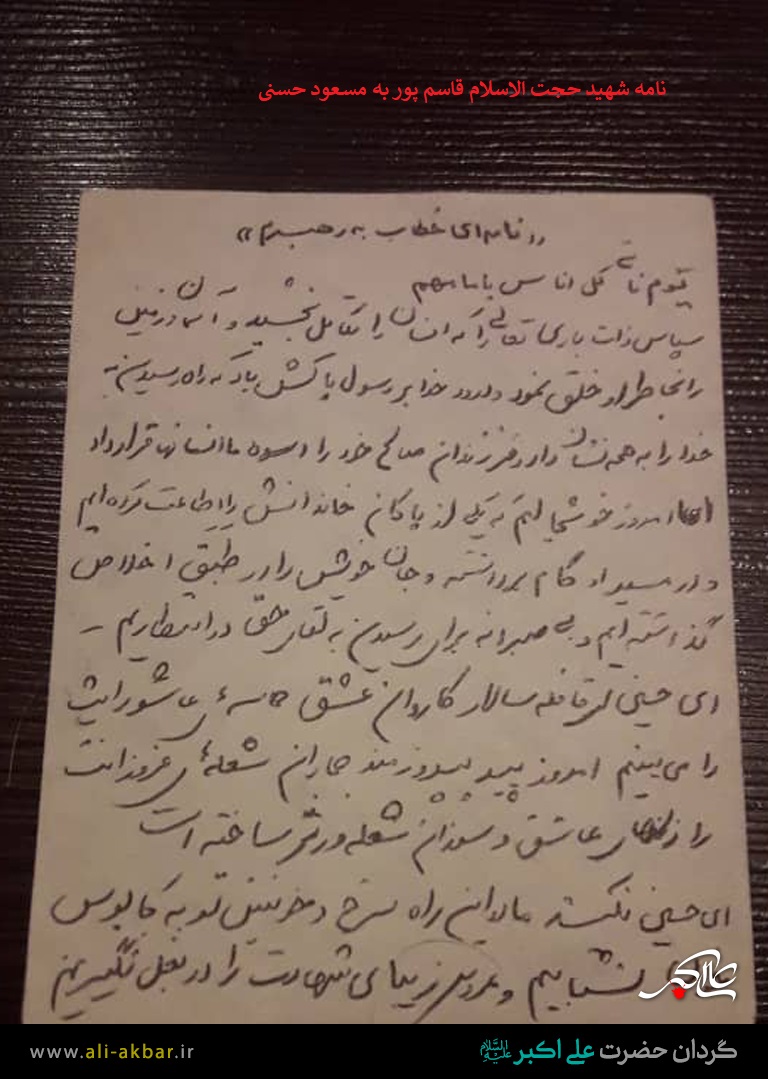 نامه شهید حجت الاسلام قاسم پور به مسعود حسنی
«نامه ای خطاب به رهبرم»
یوم ناتی کل اناس بامامهم
سپاس ذات باری تعالی را که انسان را تکامل بخشید و آسمان و زمین
را بخاطر او خلق نمود و درود خدا بر رسول پاکش باد که راه رسیدن به
خدا را به همه نشان داد و فرزندان صالح خود را اسوه ما انسانها قرار داد
امروز خوشحالیم که یکی از پاکان خاندانش را اطاعت کرده ایم
و در مسیر او گام برداشته و جان خویش را در طبق اخلاص
گذاشته ایم و بی صبرانه برای رسیدن به لقای حق در انتظاریم
ای خمینی ای قافله سالار کاروان عشق حماسه ی عاشورایت
را می بینم امروز پیر جماران شعله ی فروزانت
را عاشق و سوزان شعله ورتر ساخته است
ای خمینی نکند ما در این راه سرخ و خونین تو به کابوس
نشتابیم و عروس زیبای شهادت را در بغل نگیریم
علی اکبر
www.ali-akbar.ir
گردان حضرت علی اکبر علیه السلام